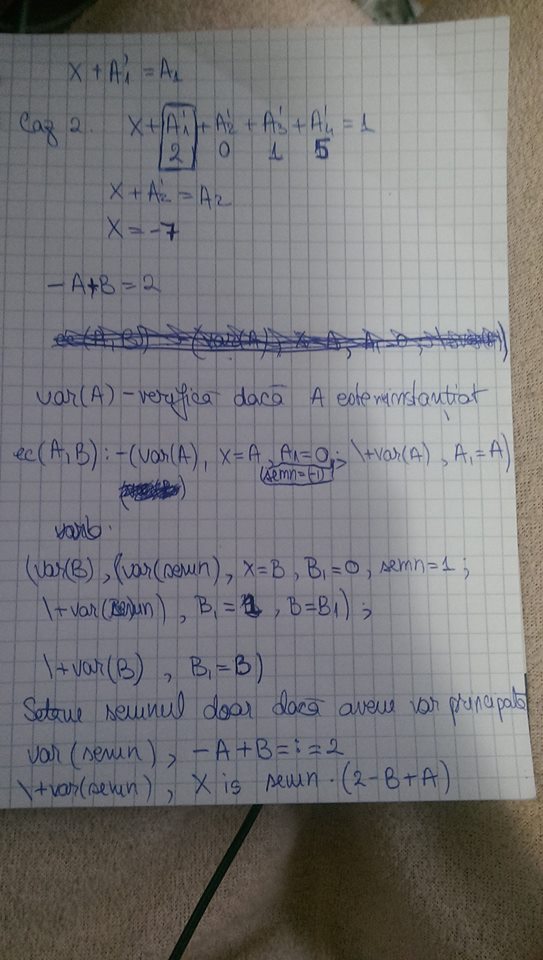 X + A₁' = A₁
Caz 2. X + A₁' + A₂' + A₃' + A₄' = 1
2 0 1 5
X + A₂' = A₂
X = -7
-A+B = 2
var(A) - verifică dacă A este neinstanțiat
ec(A,B):-(var(A), X=A, A₁=0; \+var(A), A₁=A)
semn=(-1)
varb.
(var(B), (var(semn), X=B, B₁=0, semn=1;
\+var(semn), B₁=1, B=B₁);
\+var(B), B₁=B)
Setăm semnul doar dacă avem var principală
var(semn), -A+B=:=2
\+var(semn), X is semn·(2-B+A)